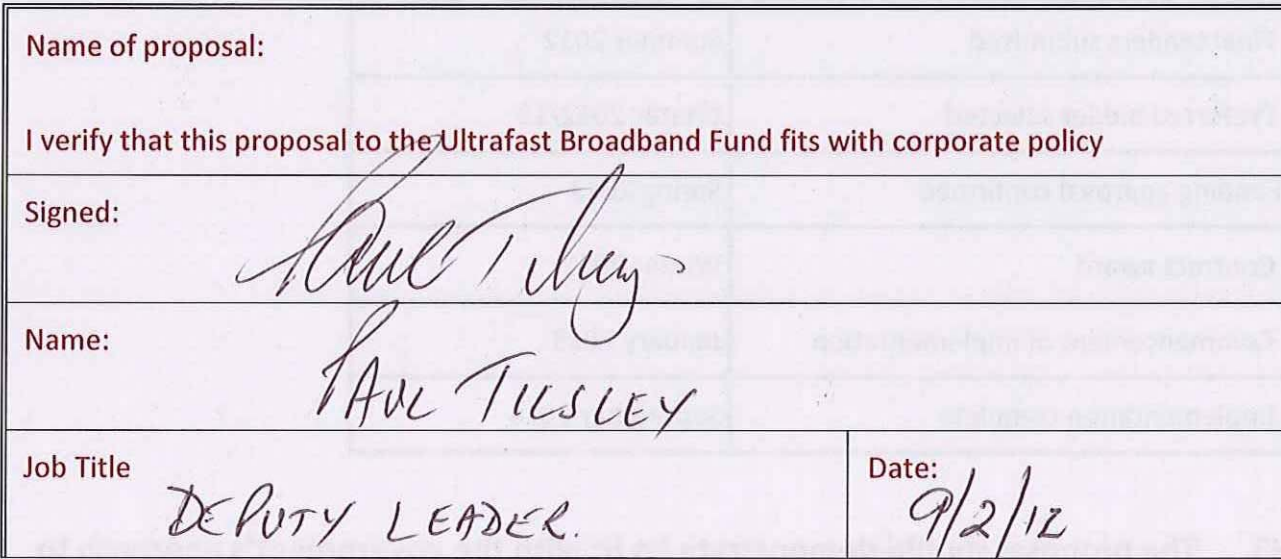 Name of proposal:
I verify that this proposal to the Ultrafast Broadband Fund fits with corporate policy
Signed: Paul Tilsley
Name: PAUL TILSLEY
Job Title DEPUTY LEADER.
Date: 9/2/12